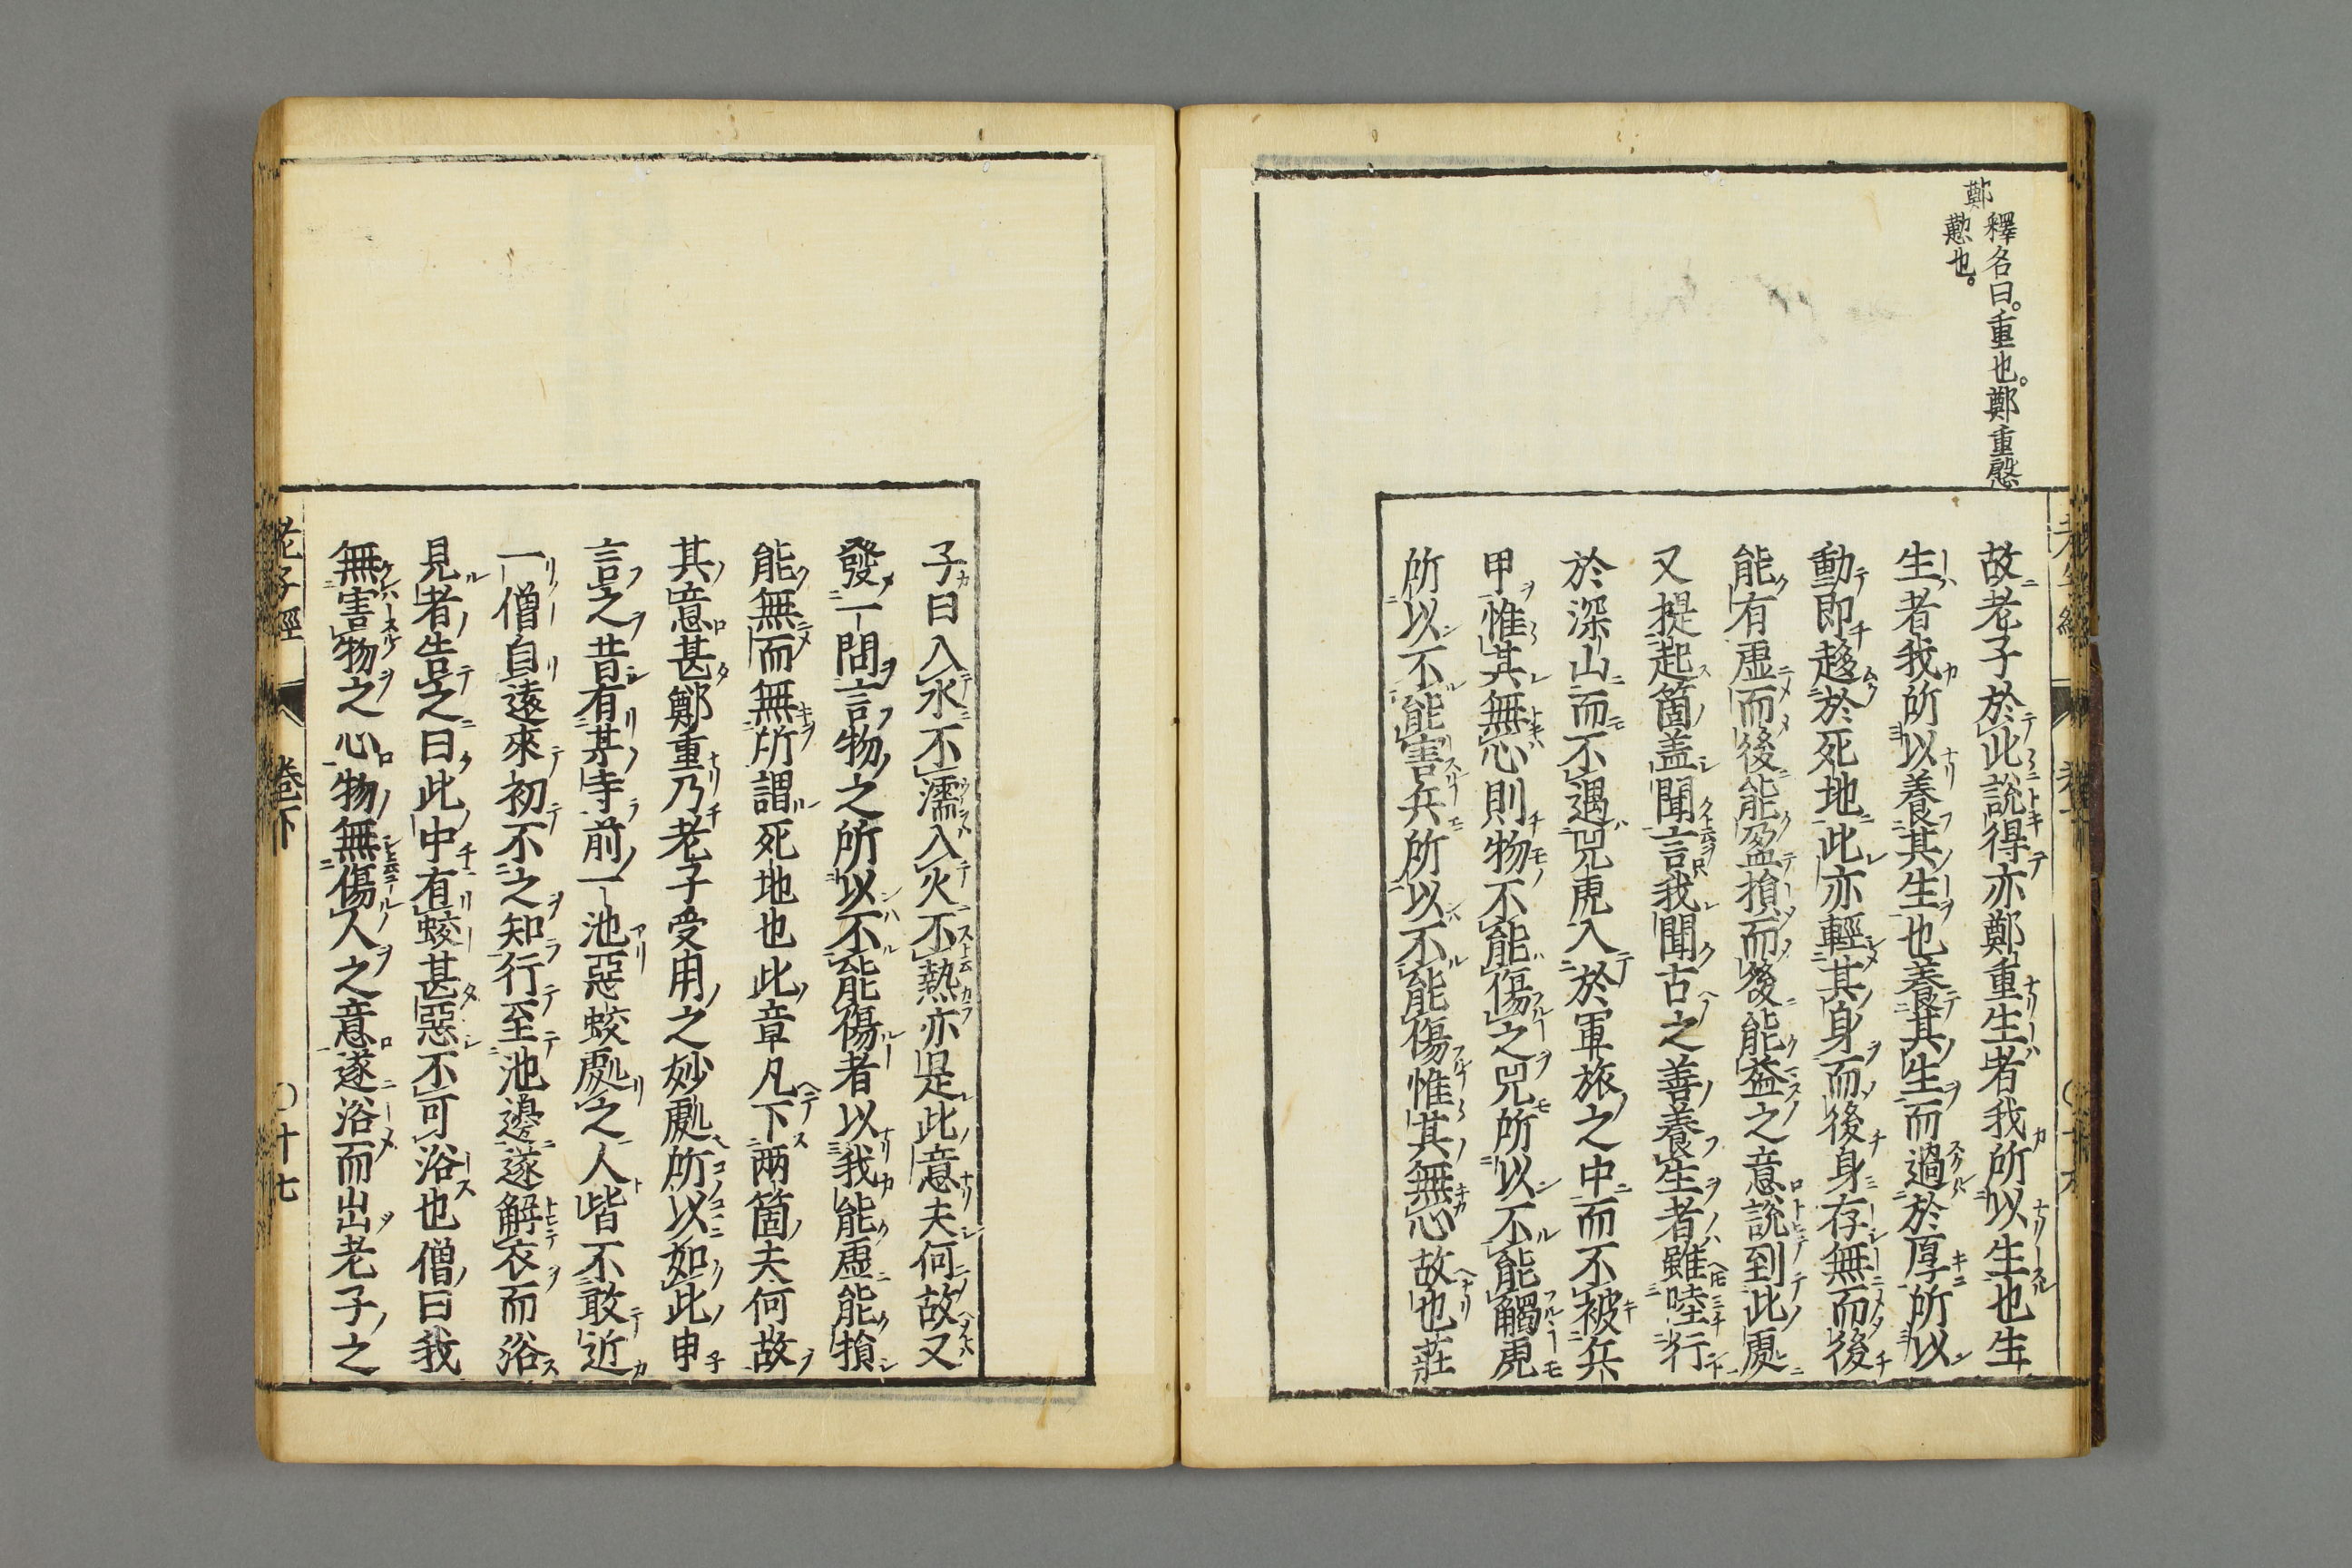 鄭
釋名曰。重也。鄭重慇
懃也。
故老子於此説得亦鄭重生者我所以生也生
生者我所以養其生也養其生而過於厚所以
動即趍於死地此亦輕其身而後身存無而後
能有虚而後能盈損而後能益之意説到此處
又提起箇盖聞言我聞古之善養生者雖陸行
於深山而不遇兕虎入於軍旅之中而不被兵
甲惟其無心則物不能傷之兕所以不能觸虎
所以不能害兵所以不能傷惟其無心故也莊
子曰入水不濡入火不熱亦是此意夫何故又
發一問言物之所以不能傷者以我能虚能損
能無而無所謂死地也此章凡下两箇夫何故
其意甚鄭重乃老子受用之妙處所以如此申
言之昔有某寺前一池惡蛟處之人皆不敢近
一僧自遠來初不之知行至池邊遂解衣而浴
見者告之曰此中有蛟甚惡不可浴也僧曰我
無害物之心物無傷人之意遂浴而出老子之
老子經 卷下 〇十七